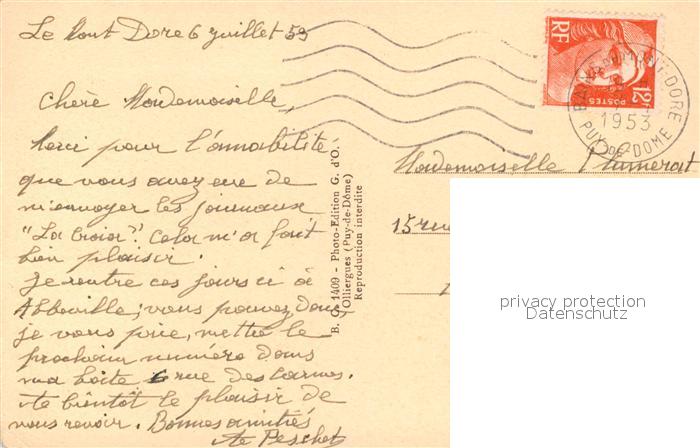 Le Mont Dore 6 juillet 53
Chère Mademoiselle,
Merci pour l'amabilité
que vous avez eue de
m'envoyer les journaux
"La Croix". Cela m'a fait
bien plaisir.
Je rentre ces jours ci à
Abbeville; vous pouvez donc,
je vous prie, mettre le
prochain numéro dans
ma boîte 6 rue des Carmes.
A bientôt le plaisir de
vous revoir. Bonnes amitiés
Peschet
B. G. 1409 - Photo-Edition G. d'O.
Olliergues (Puy-de-Dôme)
Reproduction interdite
RF
POSTES
12F
MONT-DORE
1953
PUY DE DOME
Mademoiselle Plumerat
15 rue
privacy protection
Datenschutz